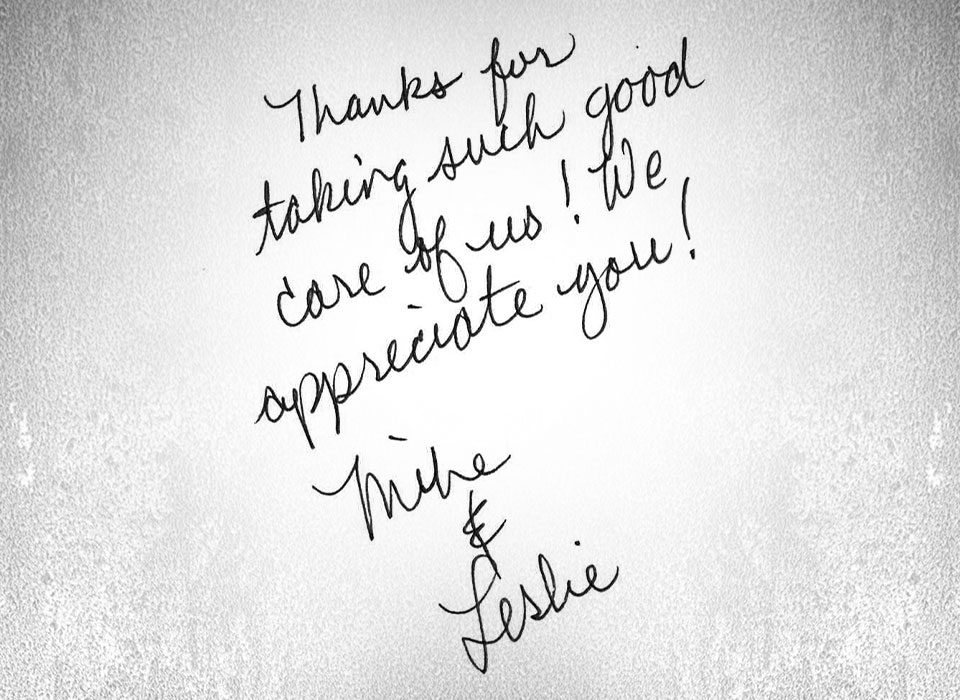 Thanks for
taking such good
care of us! We
appreciate you!
Mike
&
Leslie